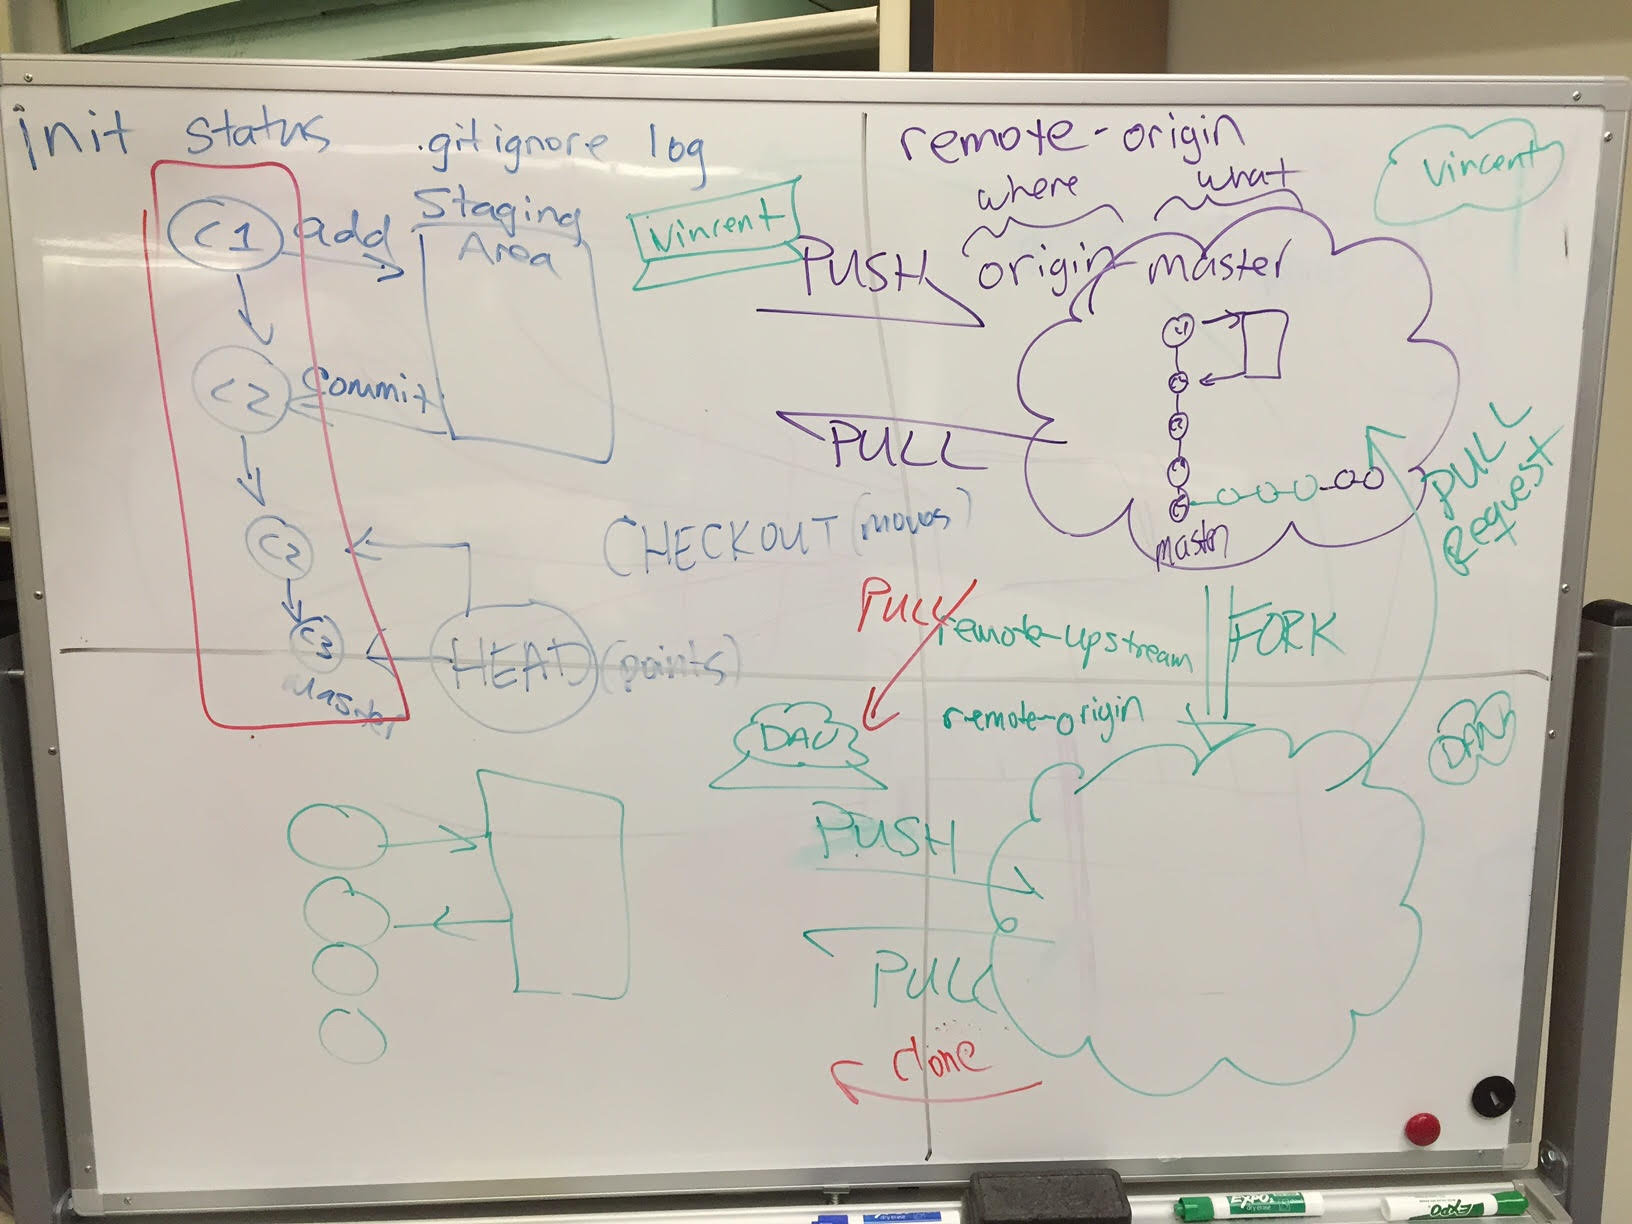 init status .gitignore log
C1 add
Staging
Area
C2 Commit
C2
C3
Master
HEAD (points)
CHECKOUT (moves)
Vincent
remote-origin
where what
PUSH origin master
PULL
C1
master
Vincent
PULL
Request
PULL
remote-upstream
FORK
remote-origin
DAN
DAN
PUSH
PULL
clone
EXPO
dry erase
EXPO